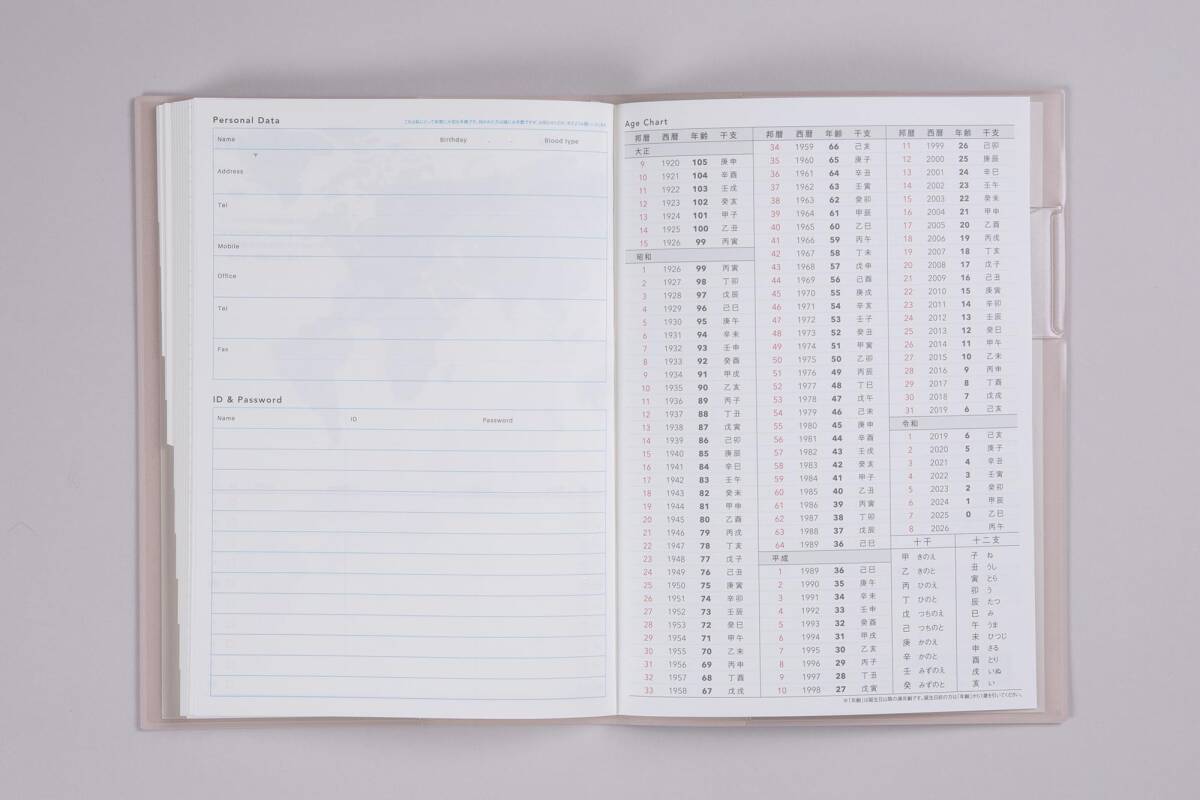 Personal Data
Name Birthday Blood type
〒
Address
Tel
Mobile
Office
Tel
Fax
ID & Password
Name ID Password
Age Chart
邦暦 西暦 年齢 干支
大正
9 1920 105 庚申
10 1921 104 辛酉
11 1922 103 壬戌
12 1923 102 癸亥
13 1924 101 甲子
14 1925 100 乙丑
15 1926 99 丙寅
昭和
1 1926 99 丙寅
2 1927 98 丁卯
3 1928 97 戊辰
4 1929 96 己巳
5 1930 95 庚午
6 1931 94 辛未
7 1932 93 壬申
8 1933 92 癸酉
9 1934 91 甲戌
10 1935 90 乙亥
11 1936 89 丙子
12 1937 88 丁丑
13 1938 87 戊寅
14 1939 86 己卯
15 1940 85 庚辰
16 1941 84 辛巳
17 1942 83 壬午
18 1943 82 癸未
19 1944 81 甲申
20 1945 80 乙酉
21 1946 79 丙戌
22 1947 78 丁亥
23 1948 77 戊子
24 1949 76 己丑
25 1950 75 庚寅
26 1951 74 辛卯
27 1952 73 壬辰
28 1953 72 癸巳
29 1954 71 甲午
30 1955 70 乙未
31 1956 69 丙申
32 1957 68 丁酉
33 1958 67 戊戌
邦暦 西暦 年齢 干支
34 1959 66 己亥
35 1960 65 庚子
36 1961 64 辛丑
37 1962 63 壬寅
38 1963 62 癸卯
39 1964 61 甲辰
40 1965 60 乙巳
41 1966 59 丙午
42 1967 58 丁未
43 1968 57 戊申
44 1969 56 己酉
45 1970 55 庚戌
46 1971 54 辛亥
47 1972 53 壬子
48 1973 52 癸丑
49 1974 51 甲寅
50 1975 50 乙卯
51 1976 49 丙辰
52 1977 48 丁巳
53 1978 47 戊午
54 1979 46 己未
55 1980 45 庚申
56 1981 44 辛酉
57 1982 43 壬戌
58 1983 42 癸亥
59 1984 41 甲子
60 1985 40 乙丑
61 1986 39 丙寅
62 1987 38 丁卯
63 1988 37 戊辰
64 1989 36 己巳
平成
1 1989 36 己巳
2 1990 35 庚午
3 1991 34 辛未
4 1992 33 壬申
5 1993 32 癸酉
6 1994 31 甲戌
7 1995 30 乙亥
8 1996 29 丙子
9 1997 28 丁丑
10 1998 27 戊寅
邦暦 西暦 年齢 干支
11 1999 26 己卯
12 2000 25 庚辰
13 2001 24 辛巳
14 2002 23 壬午
15 2003 22 癸未
16 2004 21 甲申
17 2005 20 乙酉
18 2006 19 丙戌
19 2007 18 丁亥
20 2008 17 戊子
21 2009 16 己丑
22 2010 15 庚寅
23 2011 14 辛卯
24 2012 13 壬辰
25 2013 12 癸巳
26 2014 11 甲午
27 2015 10 乙未
28 2016 9 丙申
29 2017 8 丁酉
30 2018 7 戊戌
31 2019 6 己亥
令和
1 2019 6 己亥
2 2020 5 庚子
3 2021 4 辛丑
4 2022 3 壬寅
5 2023 2 癸卯
6 2024 1 甲辰
7 2025 0 乙巳
8 2026 丙午
十干
甲 きのえ
乙 きのと
丙 ひのえ
丁 ひのと
戊 つちのえ
己 つちのと
庚 かのえ
辛 かのと
壬 みずのえ
癸 みずのと
十二支
子 ね
丑 うし
寅 とら
卯 う
辰 たつ
巳 み
午 うま
未 ひつじ
申 さる
酉 とり
戌 いぬ
亥 い
※「年齢」は誕生日以降の満年齢です。誕生日前の方は「年齢」から1歳を引いてください。